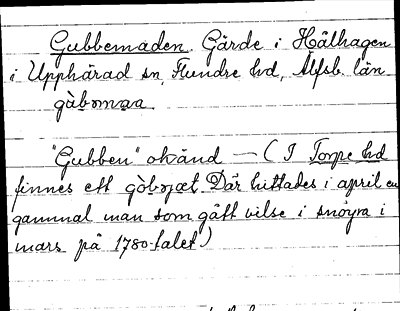 Gubbemaden. Gärde i Hålhagen
i Upphärad sn, Flundre hd, Älfsb. län
gùbəmaa
"Gubben" okänd — (I Torpe hd
finnes ett gòbəjæt. Där hittades i april en
gammal man som gått vilse i snöyra i
mars på 1780-talet)